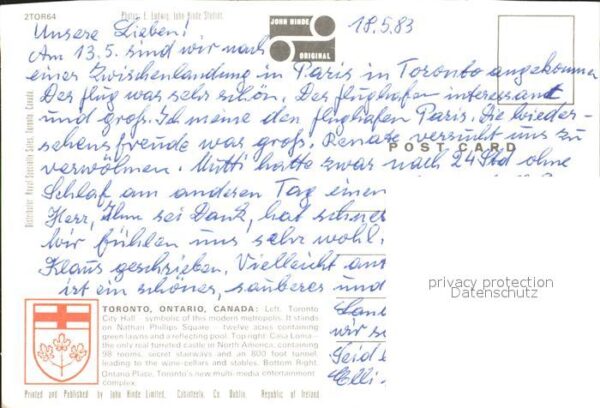 2TOR64
Photos: E. Ludwig, John Hinde Studios
JOHN HINDE
ORIGINAL
18.5.83
Unsere Lieben!
Am 13.5. sind wir nach
einer Zwischenlandung in Paris in Toronto angekommen
Der flug war sehr schön. Der flughafen interessant
und groß. Ich meine den flughafen Paris. Die Wieder-
sehensfreude war groß. Renate versucht uns zu
POST CARD
verwöhnen. Mutti hatte zwar nach 24 Std ohne
Schlaf am anderen Tag einen
Herr, Ihm sei Dank, hat schnel
Wir fühlen uns sehr wohl.
Klaus geschrieben. Vielleicht ant
ist ein schönes, sauberes und
privacy protection
Datenschutz
Land
wir se
Seid
Elli
TORONTO, ONTARIO, CANADA: Left. Toronto
City Hall - symbolic of this modern metropolis. It stands
on Nathan Phillips Square - twelve acres containing
green lawns and a reflecting pool. Top right: Casa Loma -
the only real turreted castle in North America, containing
98 rooms, secret stairways and an 800 foot tunnel
leading to the wine cellars and stables. Bottom Right.
Ontario Place, Toronto's new multi-media entertainment
complex.
Printed and Published by John Hinde Limited, Cabinteely, Co Dublin, Republic of Ireland
Distributor: Royal Specialty Sales, Toronto, Canada